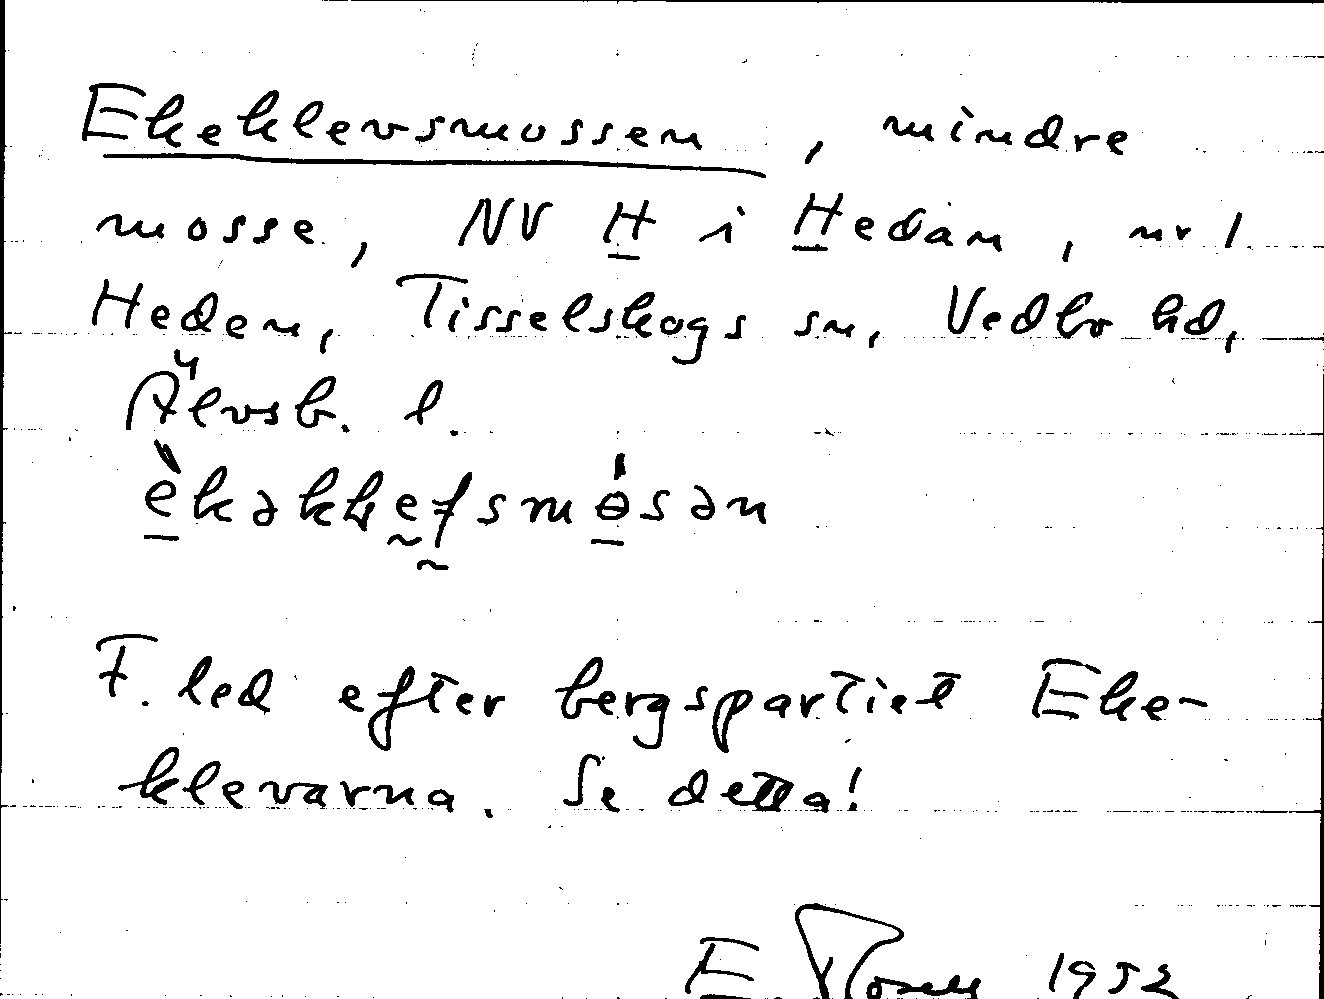 Ekeklevsmossen, mindre
mosse, NV H i Hedan, nr 1
Heden, Tisselskogs sn, Vedbo hd,
Älvsb. l.
F. led efter bergspartiet Eke-
klevarna. Se detta!
E. 1952